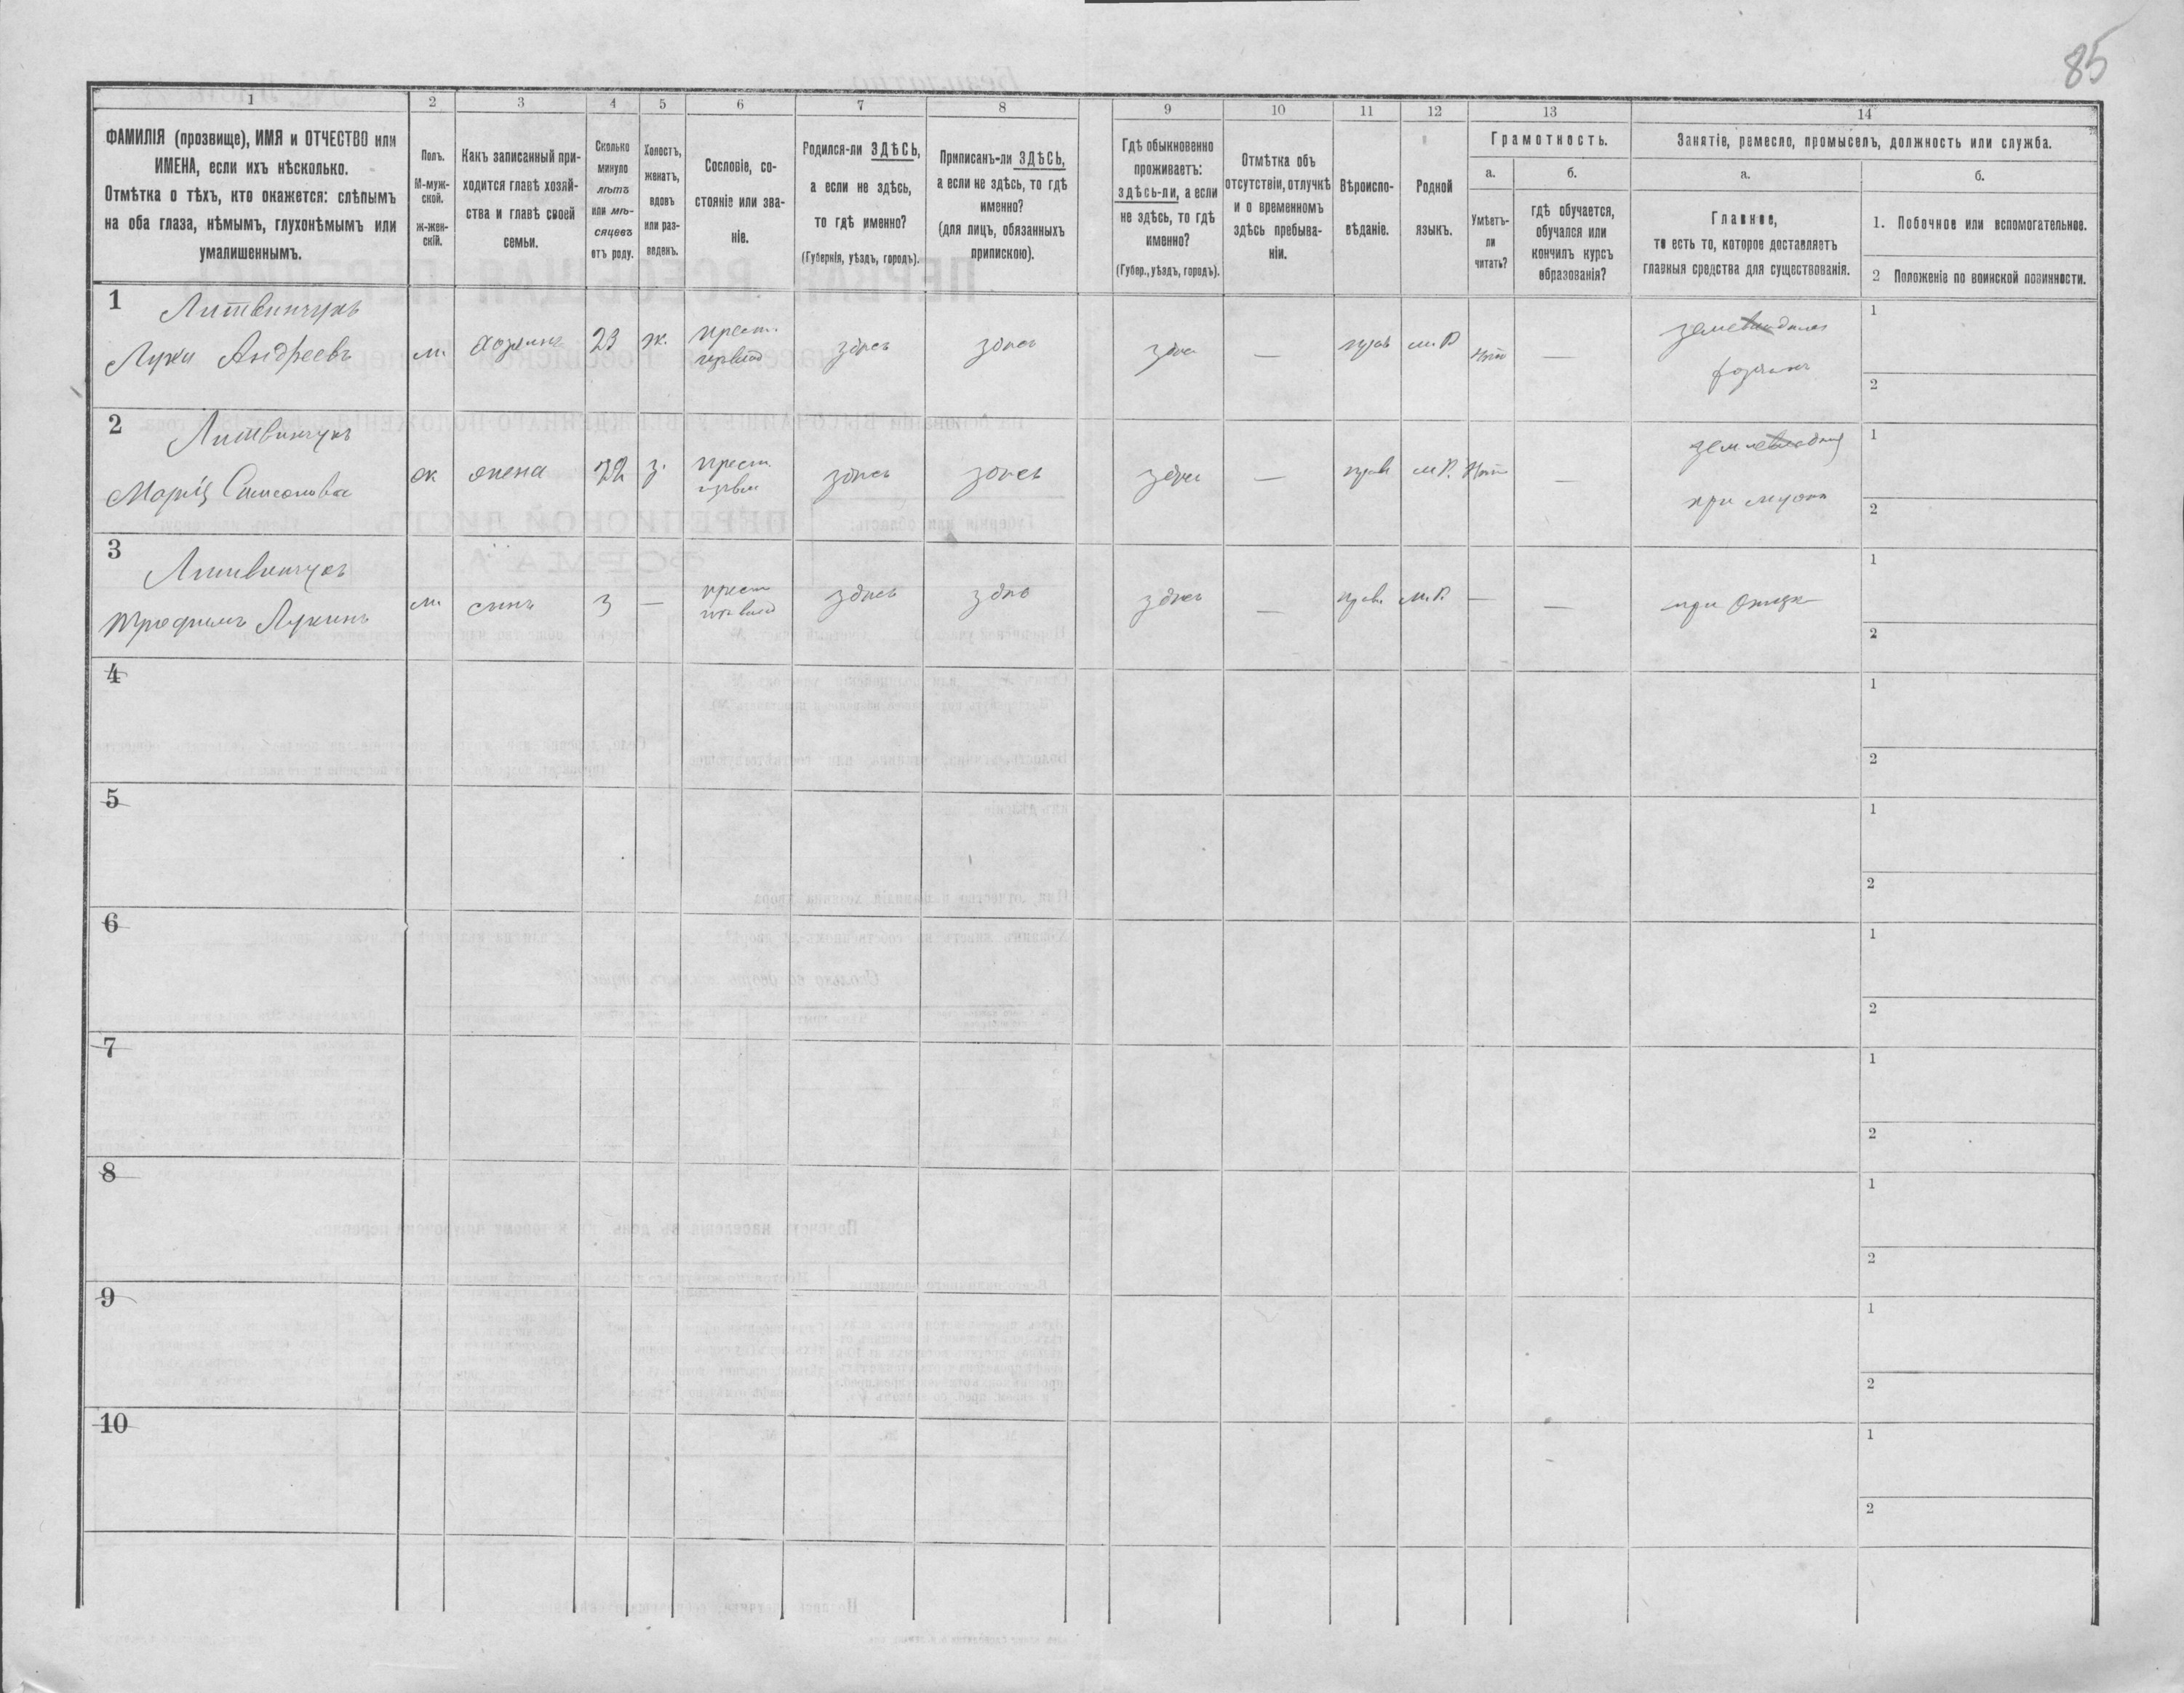 85
1 2 3 4 5 6 7 8 9 10 11 12 13 14
ФАМИЛІЯ (прозвище), ИМЯ и ОТЧЕСТВО или
ИМЕНА, если ихъ нѣсколько.
Отмѣтка о тѣхъ, кто окажется: слѣпымъ
на оба глаза, нѣмымъ, глухонѣмымъ или
умалишеннымъ.
Полъ.
М-муж-
ской.
ж-жен-
скій.
Какъ записанный при-
ходится главѣ хозяй-
ства и главѣ своей
семьи.
Сколько
минуло
лѣтъ
или мѣ-
сяцевъ
отъ роду.
Холостъ,
женатъ,
вдовъ
или раз-
веденъ.
Сословіе, со-
стояніе или зва-
ніе.
Родился-ли ЗДѢСЬ,
а если не здѣсь,
то гдѣ именно?
(Губернія, уѣздъ, городъ).
Приписанъ-ли ЗДѢСЬ,
а если не здѣсь, то гдѣ
именно?
(для лицъ, обязанныхъ
припискою).
Гдѣ обыкновенно
проживаетъ:
здѣсь-ли, а если
не здѣсь, то гдѣ
именно?
(Губер., уѣздъ, городъ).
Отмѣтка объ
отсутствіи, отлучкѣ
и о временномъ
здѣсь пребыва-
ніи.
Вѣроиспо-
вѣданіе.
Родной
языкъ.
Грамотность.
а.
Умѣетъ-
ли
читать?
б.
гдѣ обучается,
обучался или
кончилъ курсъ
образованія?
Занятіе, ремесло, промыселъ, должность или служба.
а.
Главное,
то есть то, которое доставляетъ
главныя средства для существованія.
б.
1. Побочное или вспомогательное.
2 Положеніе по воинской повинности.
1 Литвинчукъ
Лука Андреевъ м. хозяинъ 23 ж. крест. здѣсь здѣсь здѣсь — прав м.Р нѣтъ —
хозяинъ
1
2
2 Литвинчукъ
Марія Самсонова ж жена 22 з. крест. здѣсь здѣсь здѣсь — прав м.Р. Нѣтъ —
при мужѣ
1
2
3 Литвинчукъ
Трофимъ Лукинъ м. сынъ 3 — крест здѣсь здѣсь здѣсь — прав. м.Р. — — при отцѣ
1
2
4
1
2
5
1
2
6
1
2
7
1
2
8
1
2
9
1
2
10
1
2